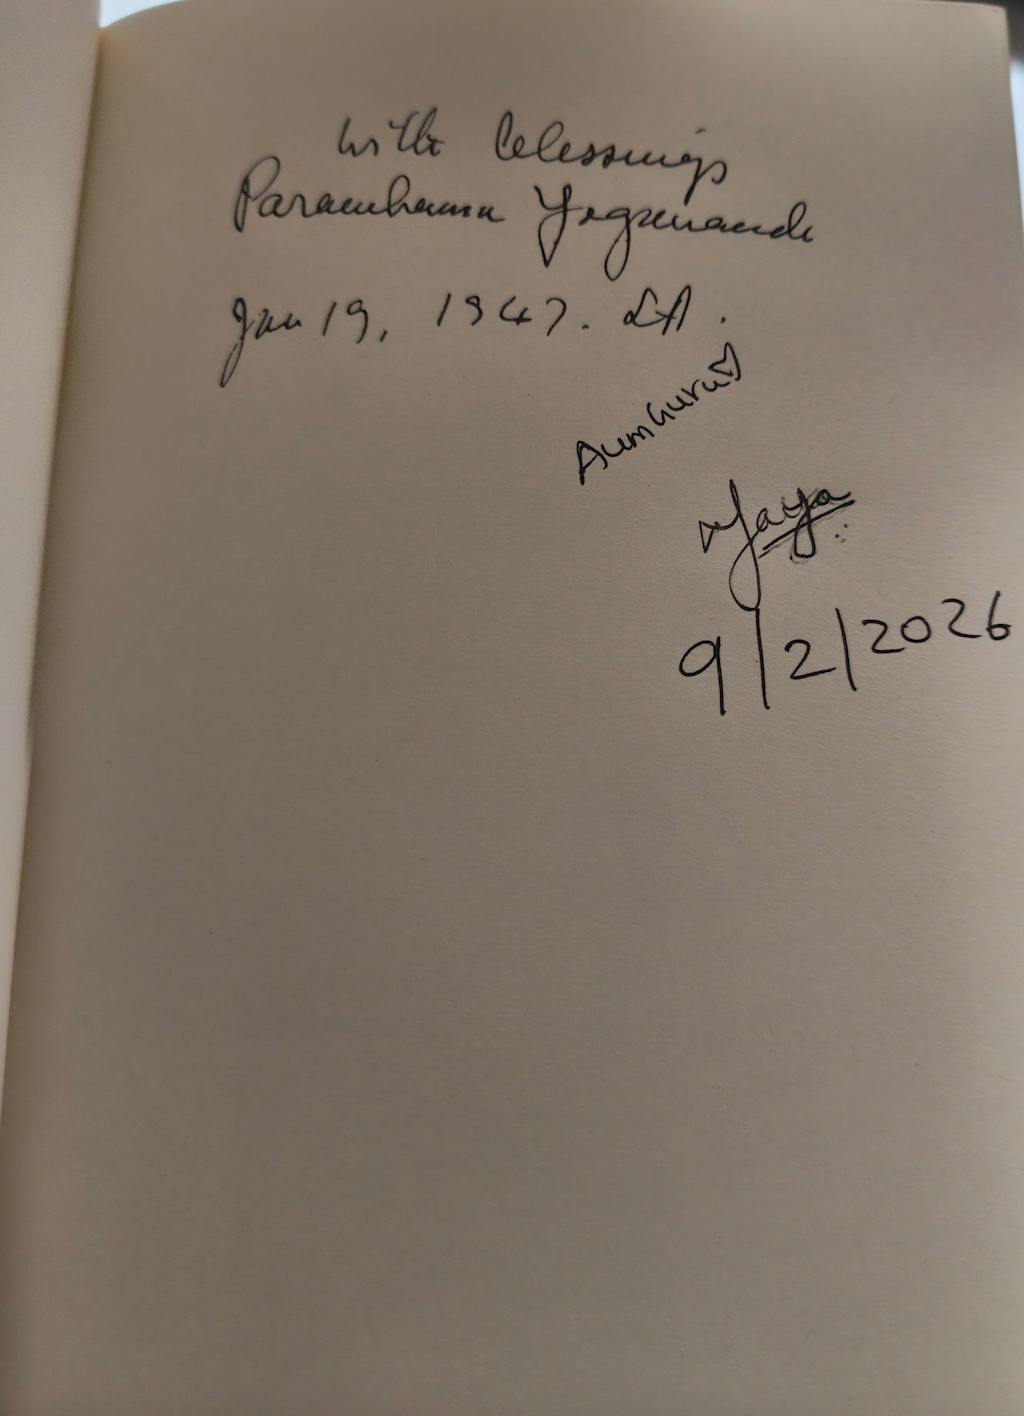 With blessings
Paramhansa Yogananda
Jan 19, 1947. LA.
Aum Guru♡
Jaya
9/2/2026